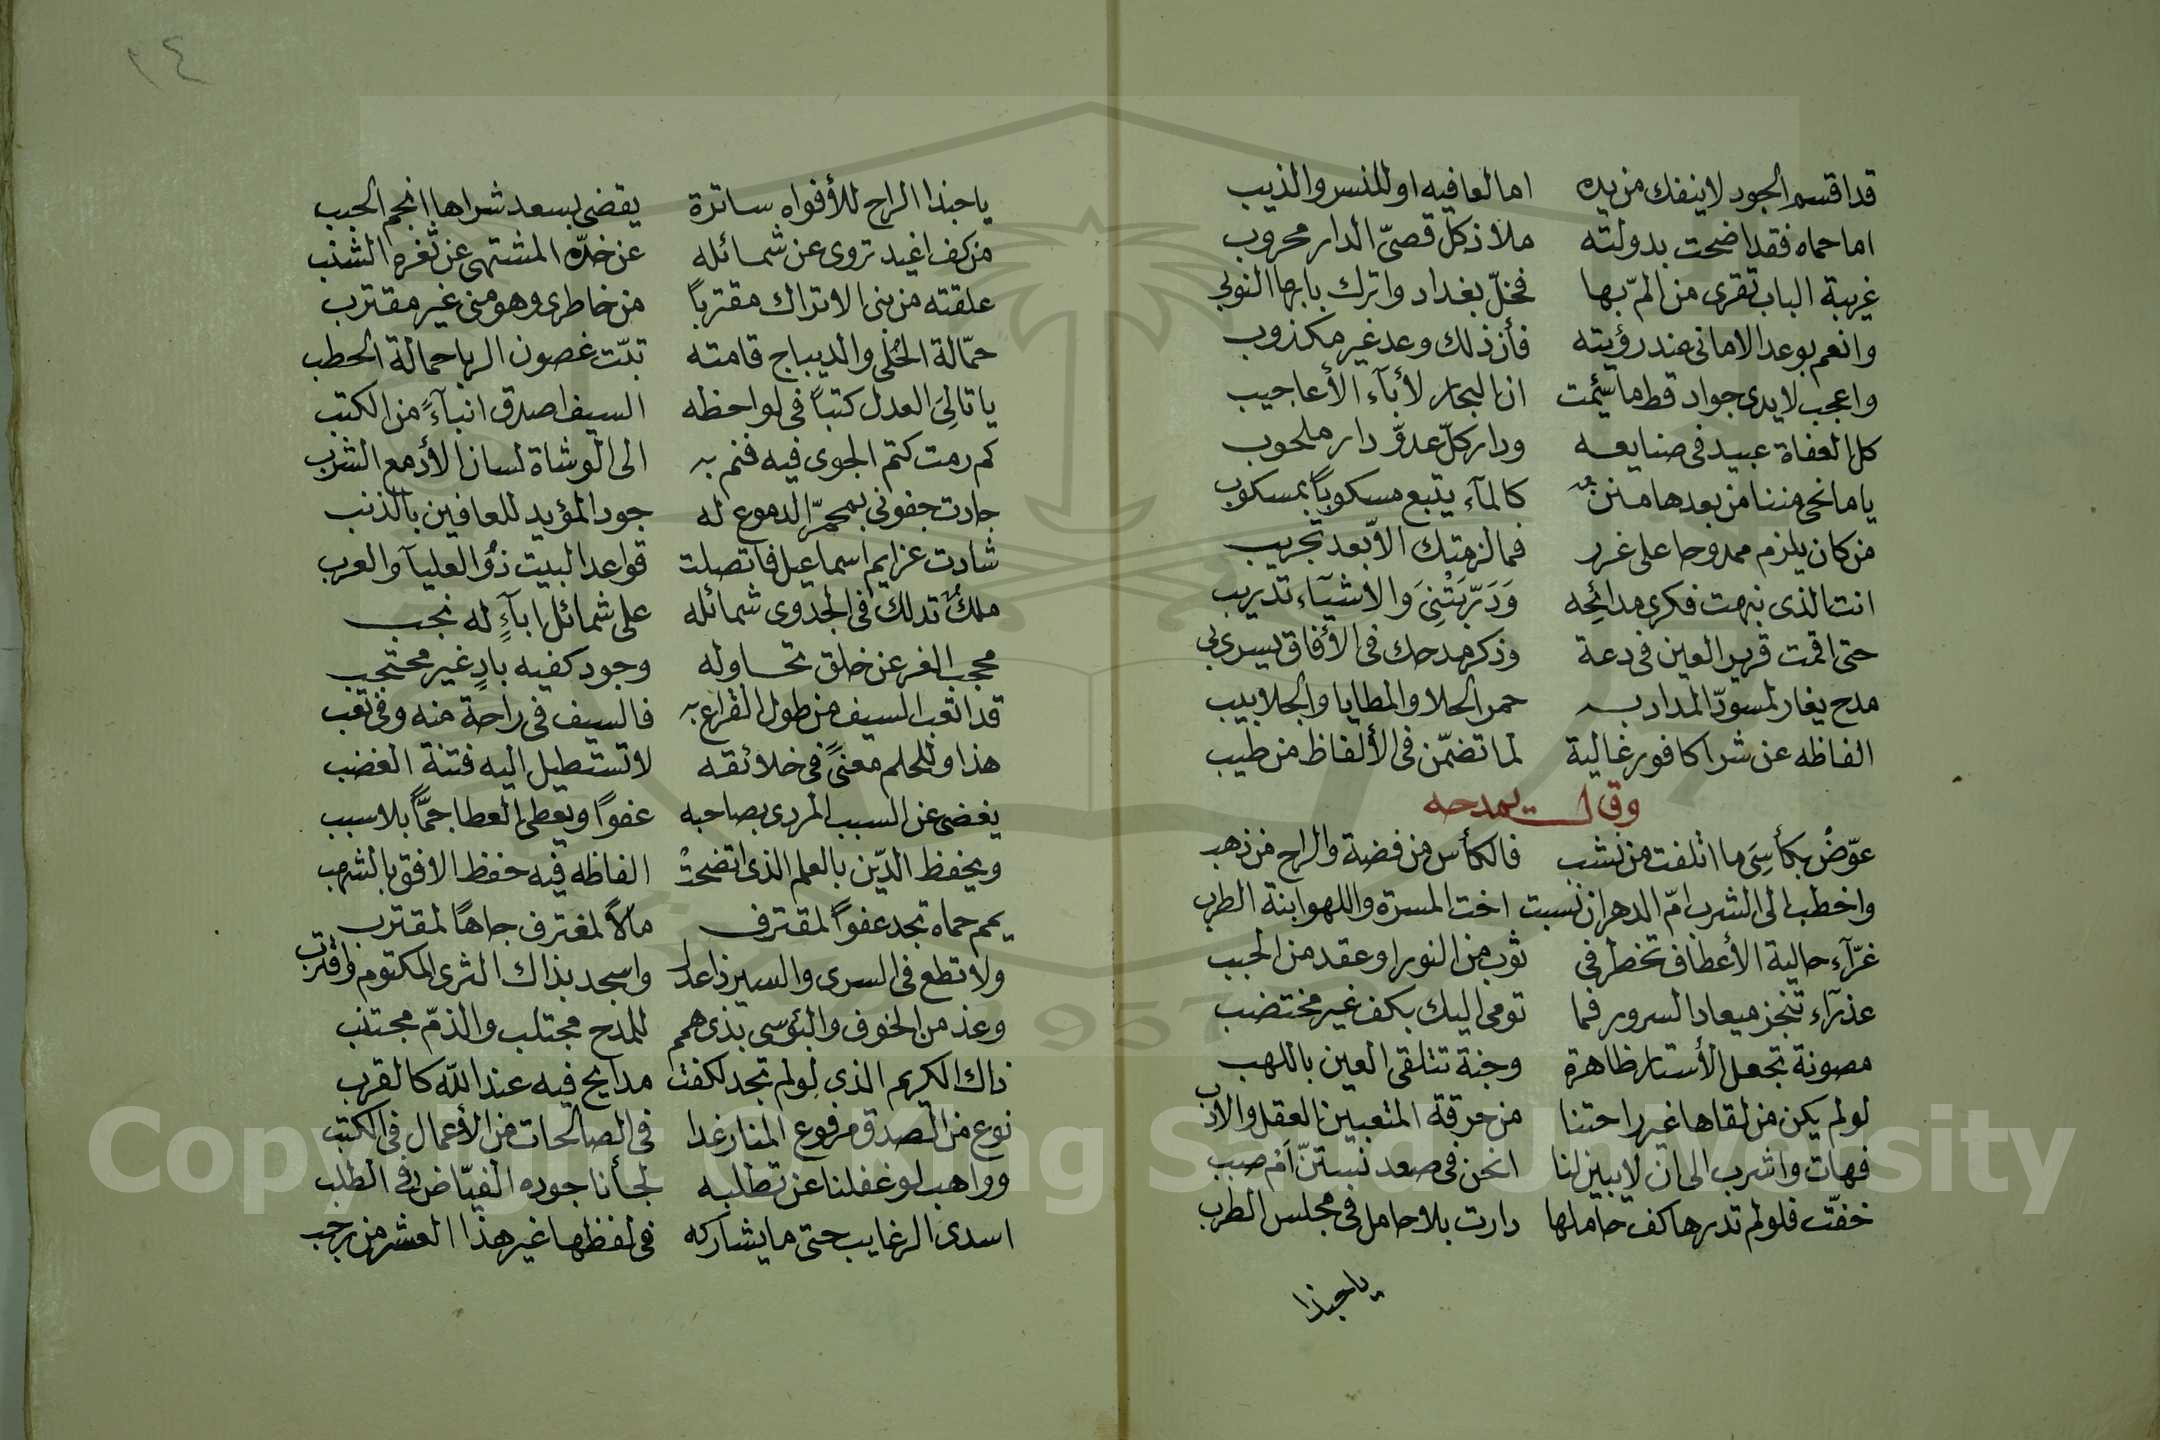 قد اقسم الجود لا ينفك من يده اما لعافيه او للنسر والذيب
اما حماه فقد اضحت بدولته ملاذ كل قصىّ الدار محروب
غريبة الباب تقرى من المّ بها فخلّ بغداد واترك بابها النوبى
وانعم بوعد الامانى عند رؤيته فأن ذلك وعد غير مكذوب
واعجب لايدى جواد قط ما سئمت ان البحار لأبآء الأعاجيب
كل العفاة عبيد فى صنايعه ودار كلّ عدوّ دار ملحوب
يا مانحى مننا من بعدها منن كالمآء يتبع مسكوباً بمسكوب
من كان يلزم ممدوحا على غرر فما لزمتك الاّ بعد تجريب
انت الذى نبهت فكرى مدائحِه وَدَرّبَتْنِىَ والاشيآء تدريب
حتى اقمت قرير العين فى دعة وذكر مدحك فى الأفاق يسرى بى
مدح يغار لمسودّ المداد به حمر الحلا والمطايا والجلابيب
الفاظه عن شرا كافور غالية لما تضمّن فى الألفاظ من طيب
وقال يمدحه
عوّضْ بكأسِىَ ما اتلفت من نشب فالكأس من فضة والراح من ذهب
واخطب الى الشرب امّ الدهر ان نسبت اخت المسرة واللهو ابنة الطرب
غرّآء حالية الأعطاف تخطر فى ثوب من النور او عقد من الحبب
عذرآء تنجز ميعاد السرور فما تومى اليك بكف غير مختضب
مصونة تجعل الأستار ظاهرة وجنة تتلقى العين باللهب
لو لم يكن من لقاها غير راحتنا من حرقة المتعبين العقل والادب
فهات واشرب الى ان لا يبين لنا انحن فى صعد نستنّ اَمْ صبب
خفّت فلو لم تدرها كف حاملها دارت بلا حامل فى مجلس الطرب
يا حبذا
١٤
يا حبذا الراح للأفواه سائرة يقضى بسعد شراها انجم الحبب
من كف اغيد تروى عن شمائله عن خدّه المشتهى عن ثغره الشنب
علقته من بنى الاتراك مقترباً من خاطرى وهو منى غير مقترب
حمّالة الحُلى والديباج قامته تبّت غصون الربا حمالة الحطب
يا تالِىَ العدل كتباً فى لواحظه السيف اصدق انبآءً من الكتب
كم رمت كتم الجوى فيه فنم به الى الوشاة لسان الأدمع السّرب
جادت جفونى بمحمرّ الدموع له جود المؤيد للعافين بالذنب
شادت عزايم اسماعيل فاتصلت قواعد البيت ذو العليآ والعرب
ملكٌ تدلك فى الجدوى شمائله على شمائل ابآءٍ له نجب
محجب الغر عن خلق تحاوله وجود كفيه بادٍ غير محتجب
قد اتعب السيف من طول القراع به فالسيف فى راحة منه وفى تعب
هذا وللحلم معنىً فى خلائقه لا تستطيل اليه فتنة الغضب
يغضى عن السبب المردى بصاحبه عفواً ويعطى العطا جمّاً بلا سبب
ويحفظ الدّين بالعلم الذى اتضحتْ الفاظه فيه حفظ الافق بالشهب
يمم حماه تجد عفواً لمقترف مآلاً لمغترف جاهاً لمقترب
ولا تطع فى السرى والسير ذا عذل واسجد بذاك الثرى المكتوم واقترب
وعذ من الخوف والبؤسى بذى همم للمدح مجتلب والذمّ مجتنب
ذاك الكريم الذى لو لم تجد لكفت مدايح فيه عند اللّه كالقرب
نوع من الصدق مرفوع المنار غدا فى الصالحات من الأعمال فى الكتب
وواهب لو غفلنا عن تطلبه لجأنا جوده الفيّاض فى الطلب
اسدى الرغايب حتى ما يشاركه فى لفظها غير هذا العشر من رجب